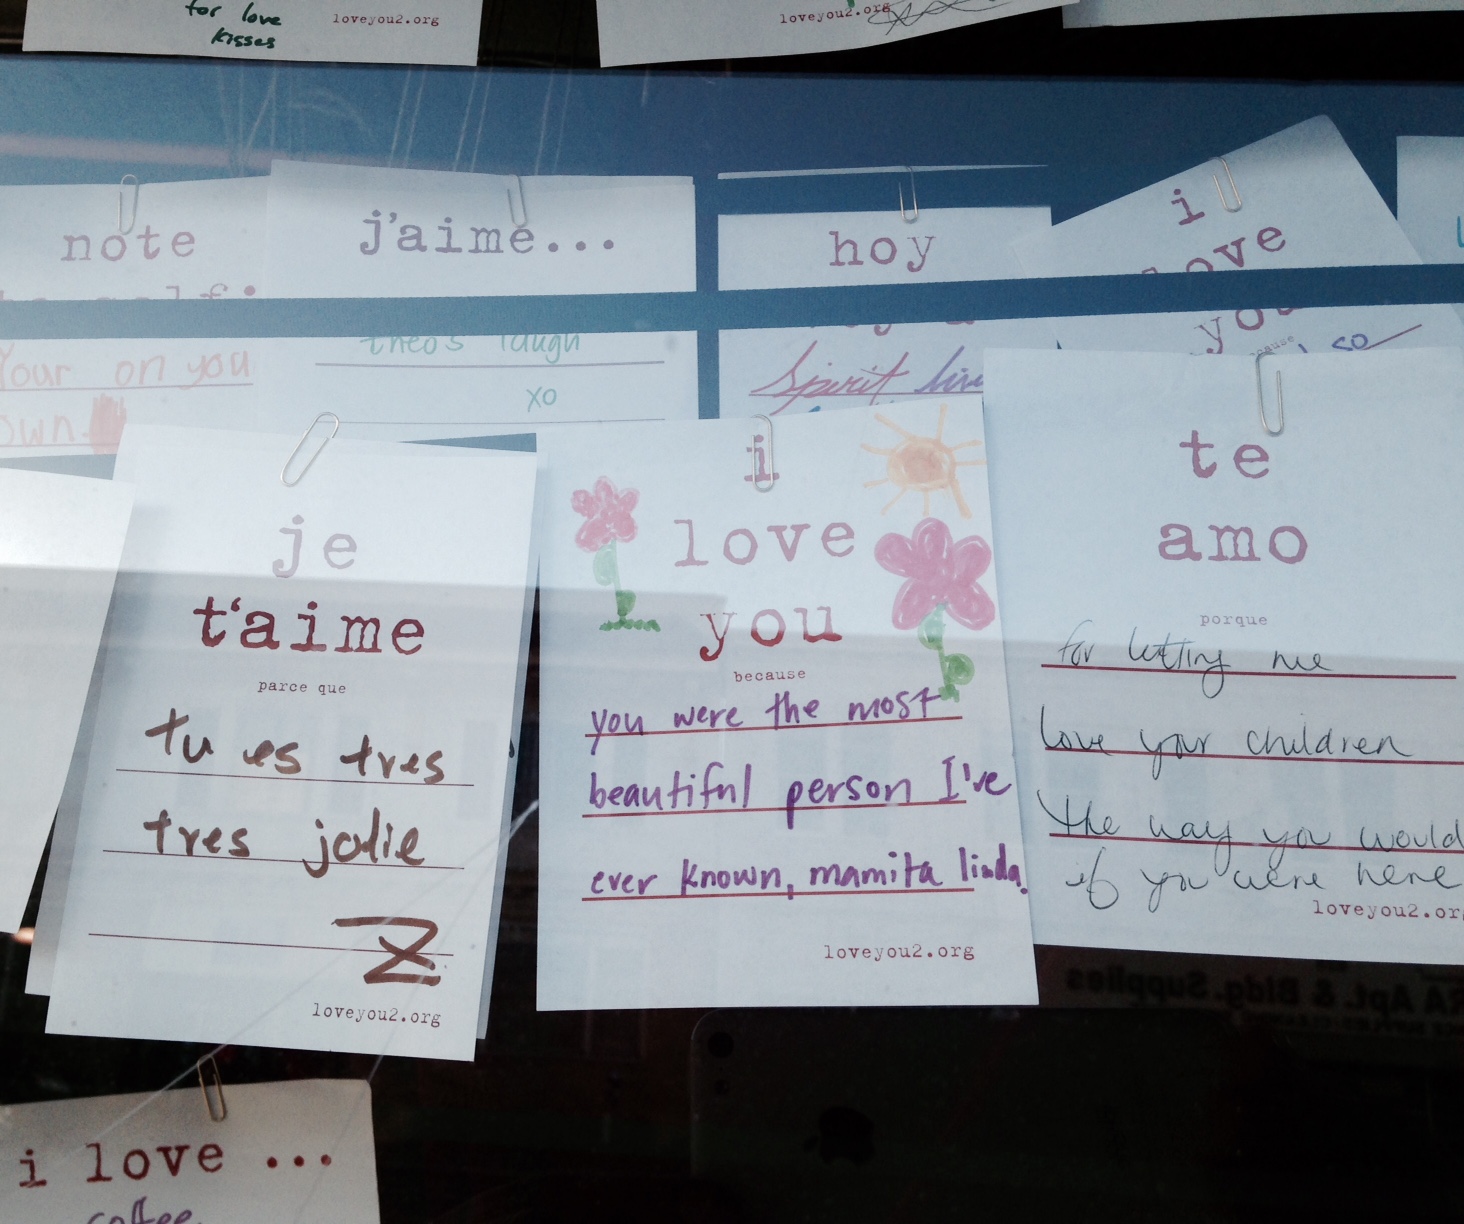 for love
kisses
loveyou2.org
loveyou2.org
note
your on you
own.
j'aime...
theo's laugh
xo
hoy
Spirit
i
love
you
so
je
t'aime
parce que
tu es tres
tres jolie
Z
loveyou2.org
i
love
you
because
you were the most
beautiful person I've
ever known, mamita linda.
loveyou2.org
te
amo
porque
for letting me
love your children
the way you would
if you were here
loveyou2.org
RA Apt. & Bldg. Supplies
i love ...
coffee